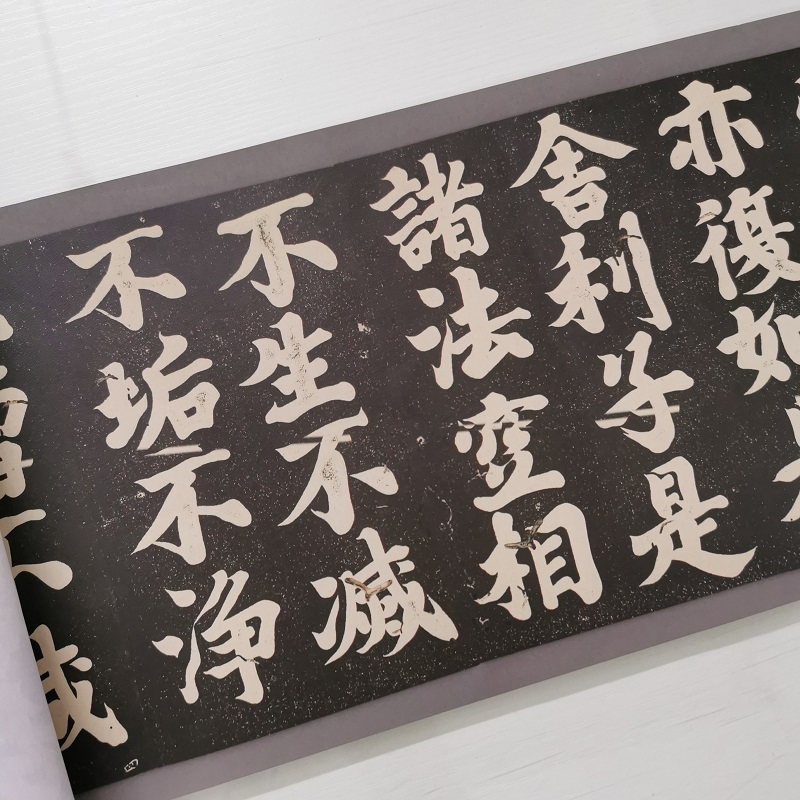 亦復如
舍利子是
諸法空相
不生不滅
不垢不淨
增不減